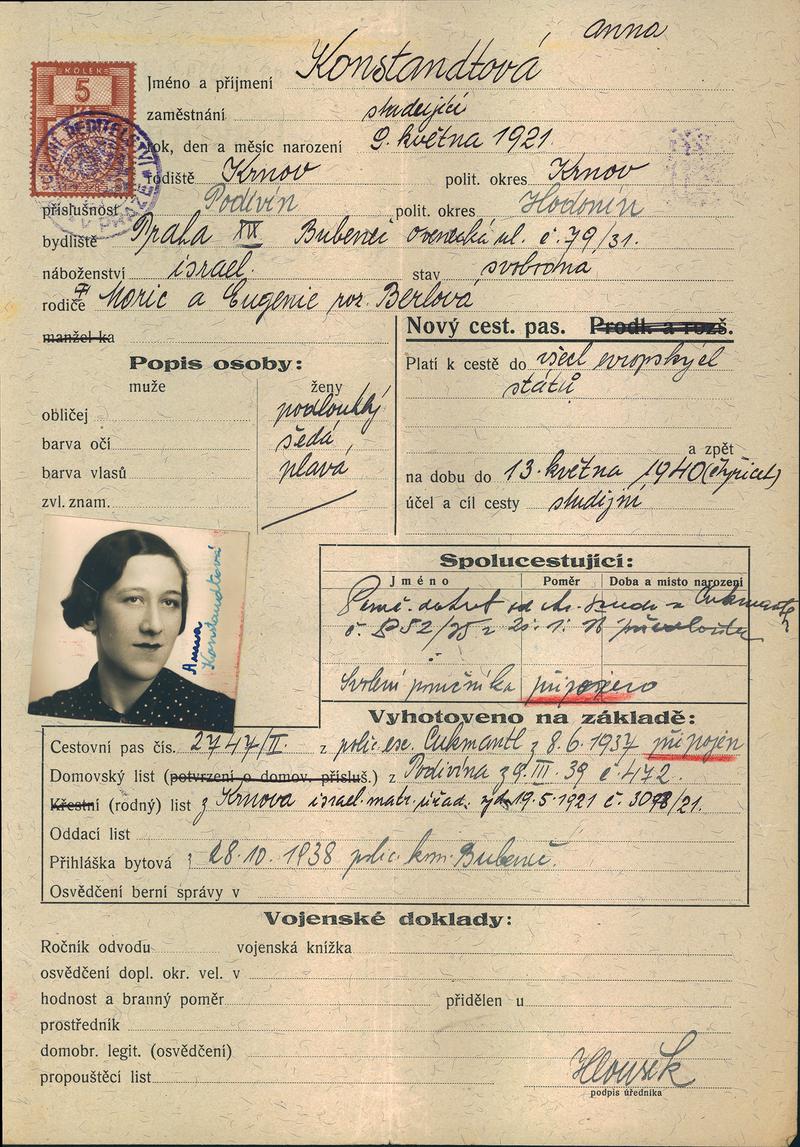 Anna
Jméno a příjmení Konstandtová
KOLEK
5
Kč
zaměstnání studující
rok, den a měsíc narození 9. května 1921.
rodiště Krnov polit. okres Krnov
příslušnost Podivín polit. okres Hodonín
V PRAZE
bydliště Praha XIX Bubeneč ovenecká ul. č. 79/31.
náboženství israel. stav svobodna
rodiče Moric a Eugenie roz. Berlová
manžel-ka
Nový cest. pas. Prodl. a rozš.
Popis osoby:
muže ženy
obličej podlouhlý
barva očí šedá
barva vlasů plavá
zvl. znam.
Platí k cestě do všech evropských
států
a zpět
na dobu do 13. května 1940 (čtyřicet)
účel a cíl cesty studijní
Anna
Konstandtová
Spolucestující:
Jméno Poměr Doba a místo narození
č. P 52/35 z
Svolení poručníka připojeno
Vyhotoveno na základě:
Cestovní pas čís. 2747/II. z polic. exc. Cukmantl z 8.6.1937 připojen
Domovský list (potvrzení o domov. přísluš.) z Podivína z 9. III. 39 č. 472.
Křestní (rodný) list z Krnova israel. matr. úřad. 19.5.1921 č. 3098/21.
Oddací list
Přihláška bytová 28.10.1938 polic. kom. Bubeneč.
Osvědčení berní správy v
Vojenské doklady:
Ročník odvodu vojenská knížka
osvědčení dopl. okr. vel. v
hodnost a branný poměr přidělen u
prostředník
domobr. legit. (osvědčení)
propouštěcí list
Hloušek
podpis úředníka